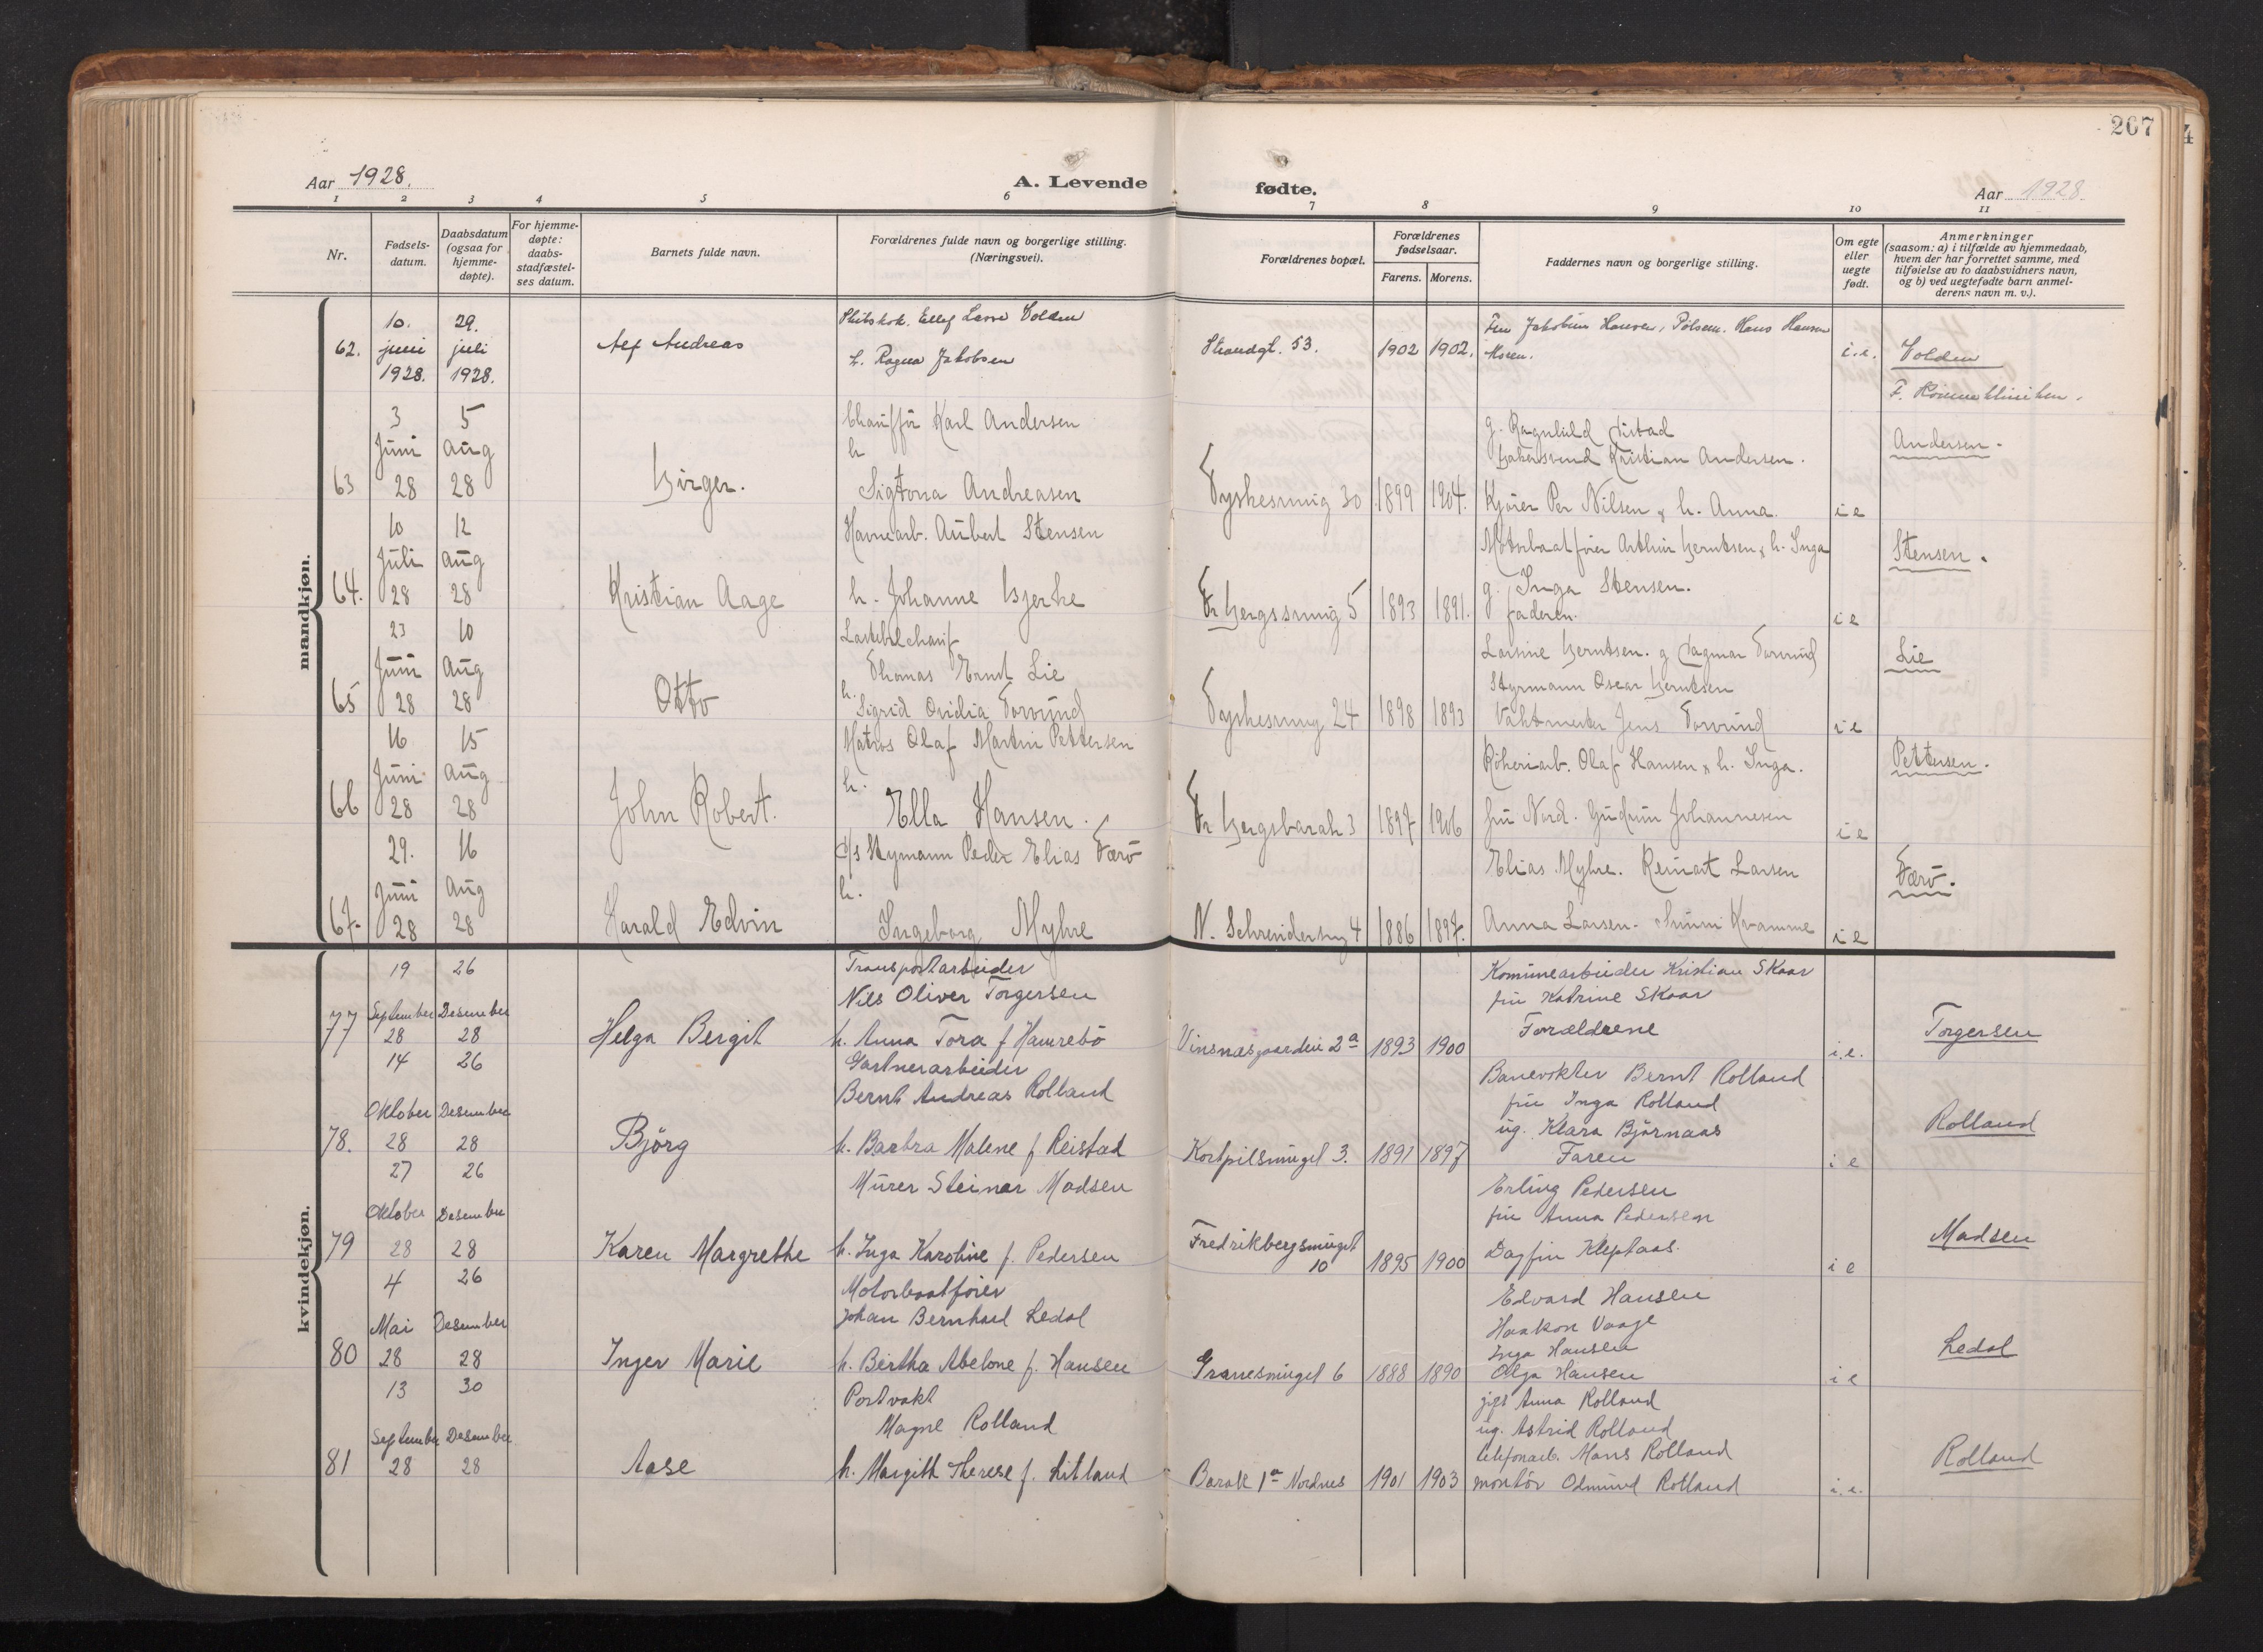 267
Aar 1928.
A. Levende
fødte.
Aar 1928
1 2 3 4 5 6 7 8 9 10 11
Nr.
Fødsels-
datum.
Daabsdatum
(ogsaa for
hjemme-
døpte).
For hjemme-
døpte:
daabs-
stadfæstel-
ses datum.
Barnets fulde navn.
Forældrenes fulde navn og borgerlige stilling.
(Næringsvei).
Forældrenes bopæl.
Forældrenes
fødselsaar.
Farens. Morens.
Faddernes navn og borgerlige stilling.
Om egte
eller
uegte
født.
Anmerkninger
(saasom: a) i tilfælde av hjemmedaab,
hvem der har forrettet samme, med
tilføielse av to daabsvidners navn,
og b) ved uegtefødte barn anmel-
derens navn m. v.).
mandkjøn.
62.
10.
juni
1928.
29.
juli
1928.
Alf Andreas
Volden
h. Ragna Jakobsen
Strandgt. 53.
1902 1902.
Hans Hansen
Moren.
i.e.
Volden
63
3
Juni
28
5
Aug
28
Birger.
Chaufför Karl Andersen
h
Sigtona Andreasen
Tyskesmug 30
1899 1904.
g. Ragnhild
Kristian Andersen.
Per Nilsen & h. Anna.
i e
Andersen.
64.
10
Juli
28
12
Aug
28
Kristian Aage
Havnearb. Aubert Stensen
h. Johanne Bjerke
Fr Bergssmug 5
1893 1891.
Motorbaatförer Arthur Berntsen & h. Inga
g. Inga Stensen.
faderen.
i e
Stensen.
65
23
Juni
28
10
Aug
28
Otto
Lastebilchauf
Thomas Ernst Lie
h.
Sigrid Ovidia Torvund
Tyskesmug 24
1898 1893
Larsine Berntsen. g Dagmar Torvund
Styrmann Oscar Berntsen
Vaktmester Jens Torvund
i e
Lie
66
16
Juni
28
15
Aug
28
John Robert.
Matros Olaf Martin Pettersen
h.
Ella Hansen.
Fr Bergsbarak 3
1897 1906
Olaf Hansen & h. Inga.
Gudrun Johannesen
i e
Pettersen.
67.
29.
Juni
28
16
Aug
28
Harald Edvin
d/s Styrmann Peder Elias Færö
h.
Ingeborg Myhre
N. Schreudersmug 4
1886 1897.
Elias Myhre. Reinart Larsen
Anna Larsen. Kvamme
i e
Færö.
kvindekjøn.
77
19
September
28
26
Desember
28
Helga Bergit
Transportarbeider
Nils Oliver Torgersen
h. Anna Tora f Hamrebö
Vinsnæsgaarden 2a
1893 1900
Komunearbeider Kristian Skaar
fru Katrine Skaar
Forældrene
i.e.
Torgersen
78.
14
Oktober
28
26
Desember
28
Björg
Gartnerarbeider
Bernt Andreas Rolland
h. Barbra Malene f Reistad
Kortpilsmuget 3.
1891 1897
Banevokter Bernt Rolland
fru Inga Rolland
ug. Klara Björnaas
Faren
i e
Rolland
79
27
Oktober
28
26
Desember
28
Karen Margrethe
Murer Steinar Madsen
h. Inga Karoline f. Pedersen
Fredrikbergsmuget
10
1895 1900
Erling Pedersen
fru Anna Pedersen
Dagfin Kleptaas.
i e
Madsen
80
4
Mai
28
26
Desember
28
Inger Marie
Motorbaatförer
Johan Bernhard Ledal
h. Bertha Abelone f. Hansen
Granesmuget 6
1888 1890
Edvard Hansen
Haakon Vaage
Inga Hansen
Olga Hansen
i e
Ledal
81
13
September
28
30
Desember
28
Aase
Portvakt
Magne Rolland
h. Margith Therese f. Litland
Barak 1a Nordnes
1901 1903
gift Anna Rolland
ug. Astrid Rolland
telefonarb. Mons Rolland
montör Odmund Rolland
i.e.
Rolland